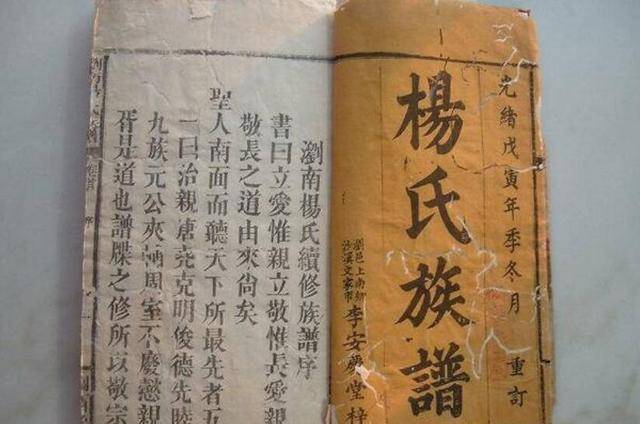 光緒戊寅年季冬月　重訂
楊氏族譜
瀏邑上南鄉
沙溪文家市
李安慶堂梓
瀏南楊氏續修族譜序
書曰立愛惟親立敬惟長愛親
敬長之道由來尙矣
聖人南面而聽天下所最先者五
一曰治親唐堯克明俊德先睦
九族元公夾輔周室不廢懿親
胥是道也譜牒之修所以敬宗